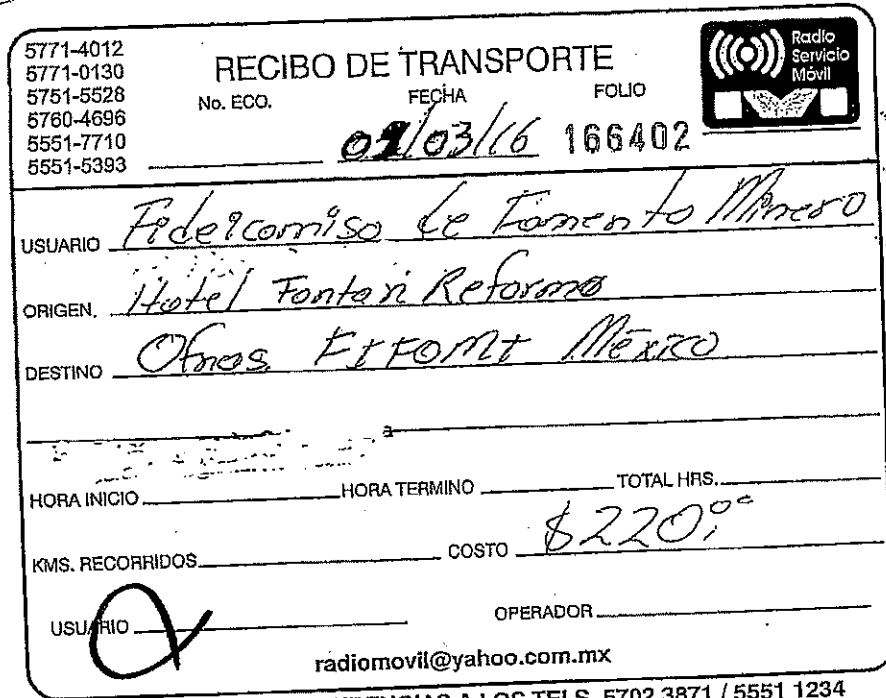 5771-4012
5771-0130
5751-5528
5760-4696
5551-7710
5551-5393
RECIBO DE TRANSPORTE
Radio
Servicio
Móvil
No. ECO. FECHA FOLIO
/03/16 166402
USUARIO Fideicomiso de Fomento Minero
ORIGEN. Hotel Fontan Reforma
DESTINO Ofnas. FIFOMI México
HORA INICIO HORA TERMINO TOTAL HRS.
KMS. RECORRIDOS COSTO $220.00
USUARIO OPERADOR
radiomovil@yahoo.com.mx
A LOS TELS. 5702 3871 / 5551 1234